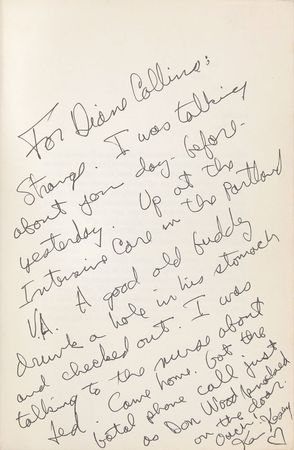 For Diane Collins:
Strange. I was talking
about you day-before-
yesterday. Up at the
Intensive Care in the Portland
V.A. A good old buddy
drunk a hole in his stomach
and checked out. I was
talking to the nurse about
Ted. Came home. Got the
fatal phone call just
as Don Wood knocked
on the door.
Ouch!
Ken Kesey